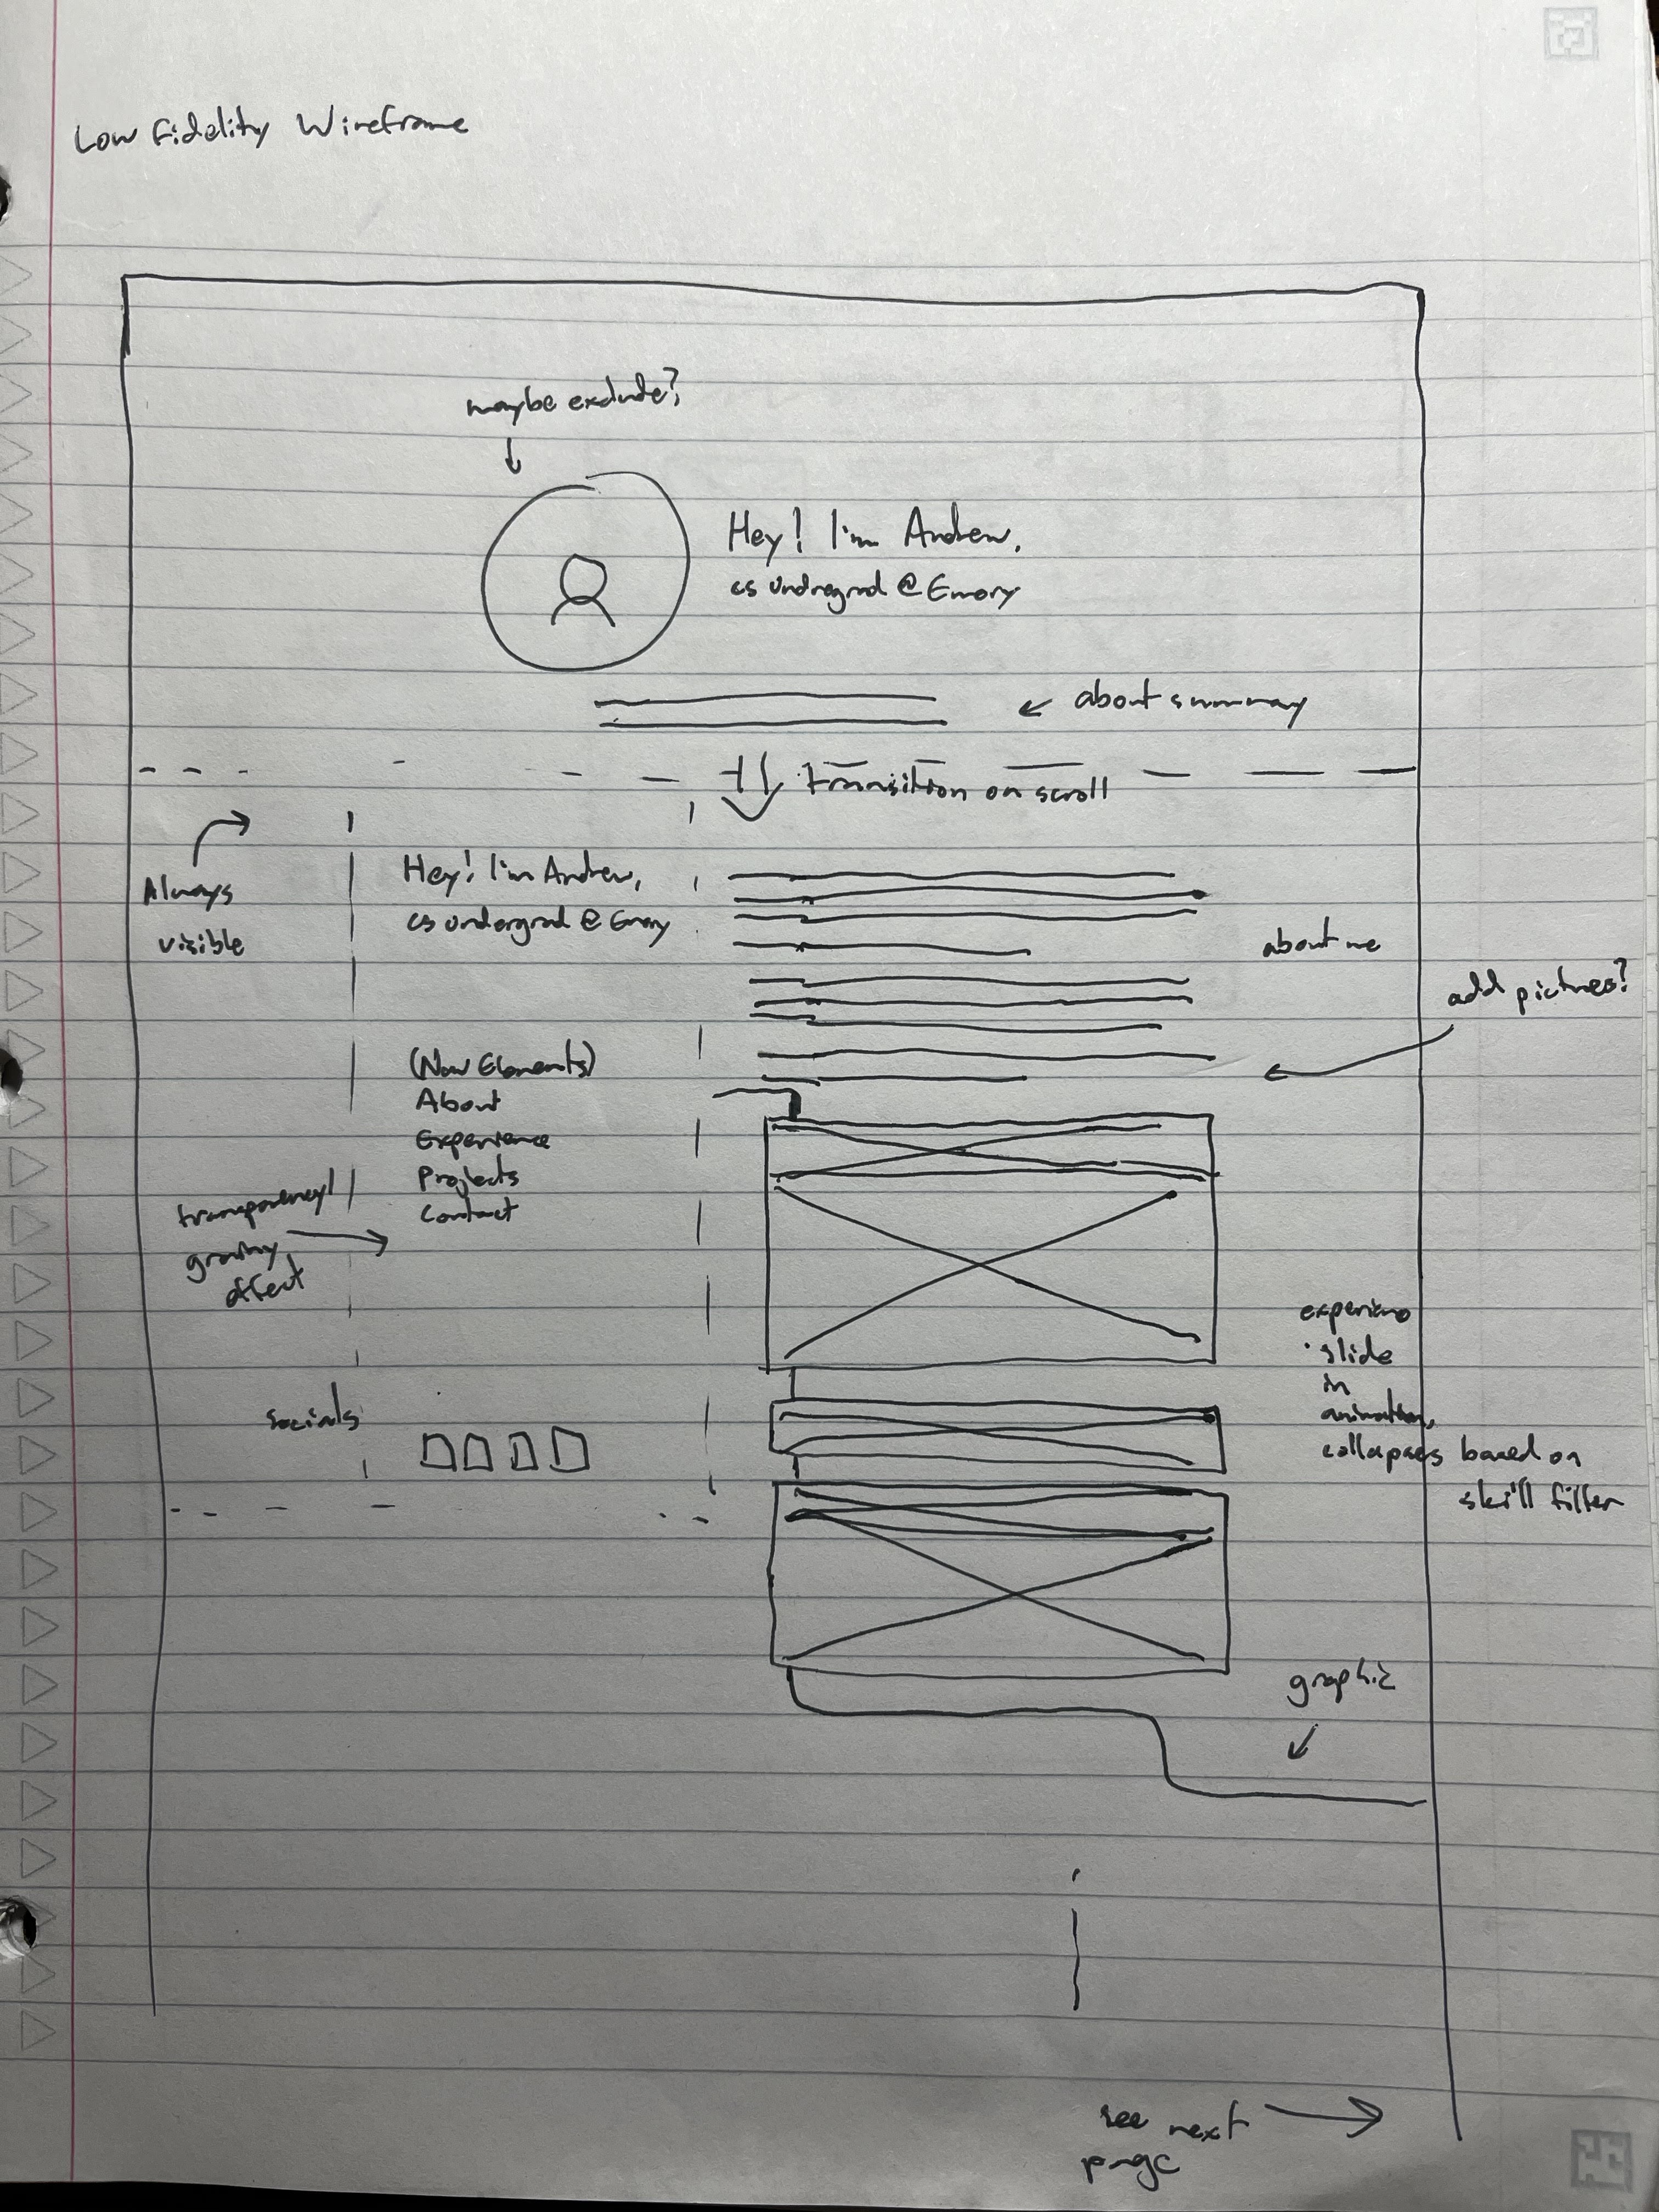 Low Fidelity Wireframe
maybe exclude?
Hey! I'm Andrew,
cs undregrad @ Emory
about summary
transition on scroll
Always
visible
Hey! I'm Andrew,
cs undergrad @ Emory
about me
add pictures?
(Nav Elements)
About
Experience
Projects
Contact
transparency/
grainy
effect
experience
slide
in
animation,
collapses based on
skill filter
socials
graphic
see next
page